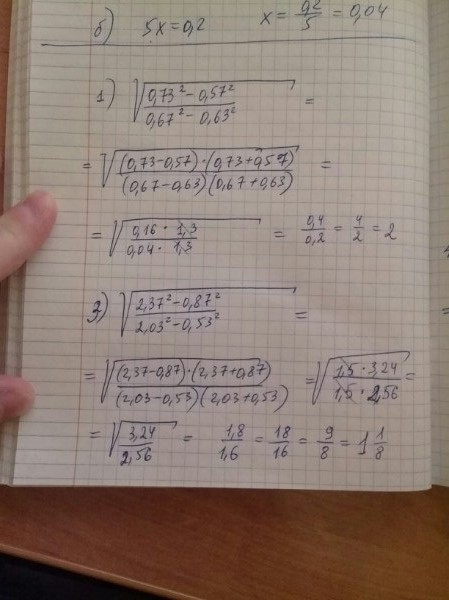 б) 5x=0,2 x = 0,2/5 = 0,04
1) √((0,73² - 0,57²)/(0,67² - 0,63²)) =
= √((0,73-0,57)·(0,73+0,57)/(0,67-0,63)(0,67+0,63)) =
= √((0,16 · 1,3)/(0,04 · 1,3)) = 0,4/0,2 = 4/2 = 2
3) √((2,37²-0,87²)/(2,03²-0,53²)) =
= √((2,37-0,87)·(2,37+0,87)/(2,03-0,53)(2,03+0,53)) = √((1,5 · 3,24)/(1,5 · 2,56)) =
= √(3,24/2,56) = 1,8/1,6 = 18/16 = 9/8 = 1 1/8